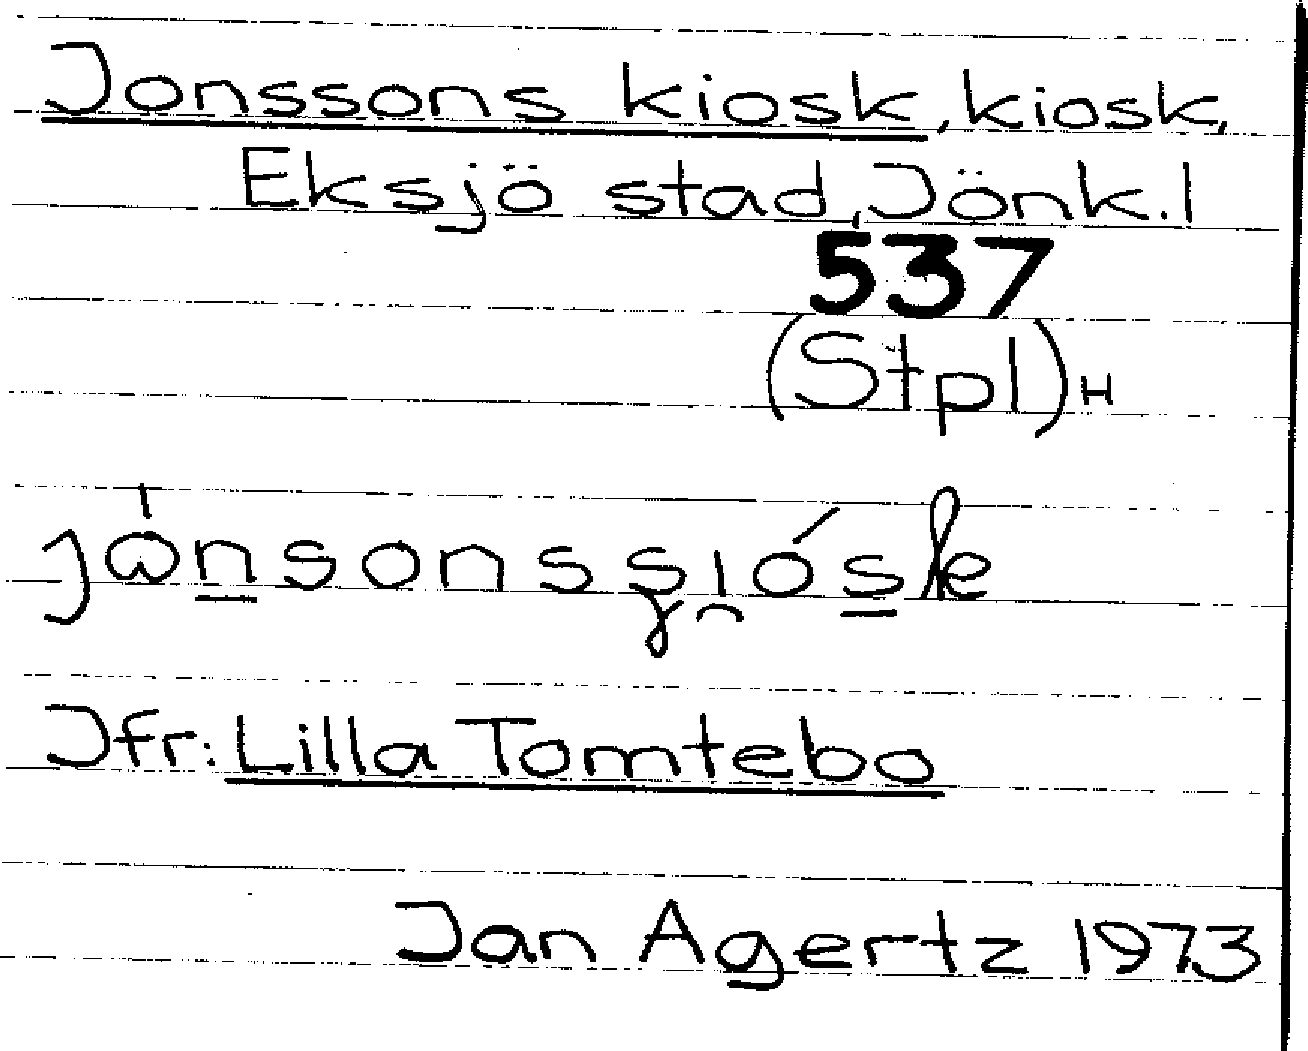 Jonssons kiosk, kiosk,
Eksjö stad, Jönk. l
537
(Stpl) H
Jfr: Lilla Tomtebo
Jan Agertz 1973